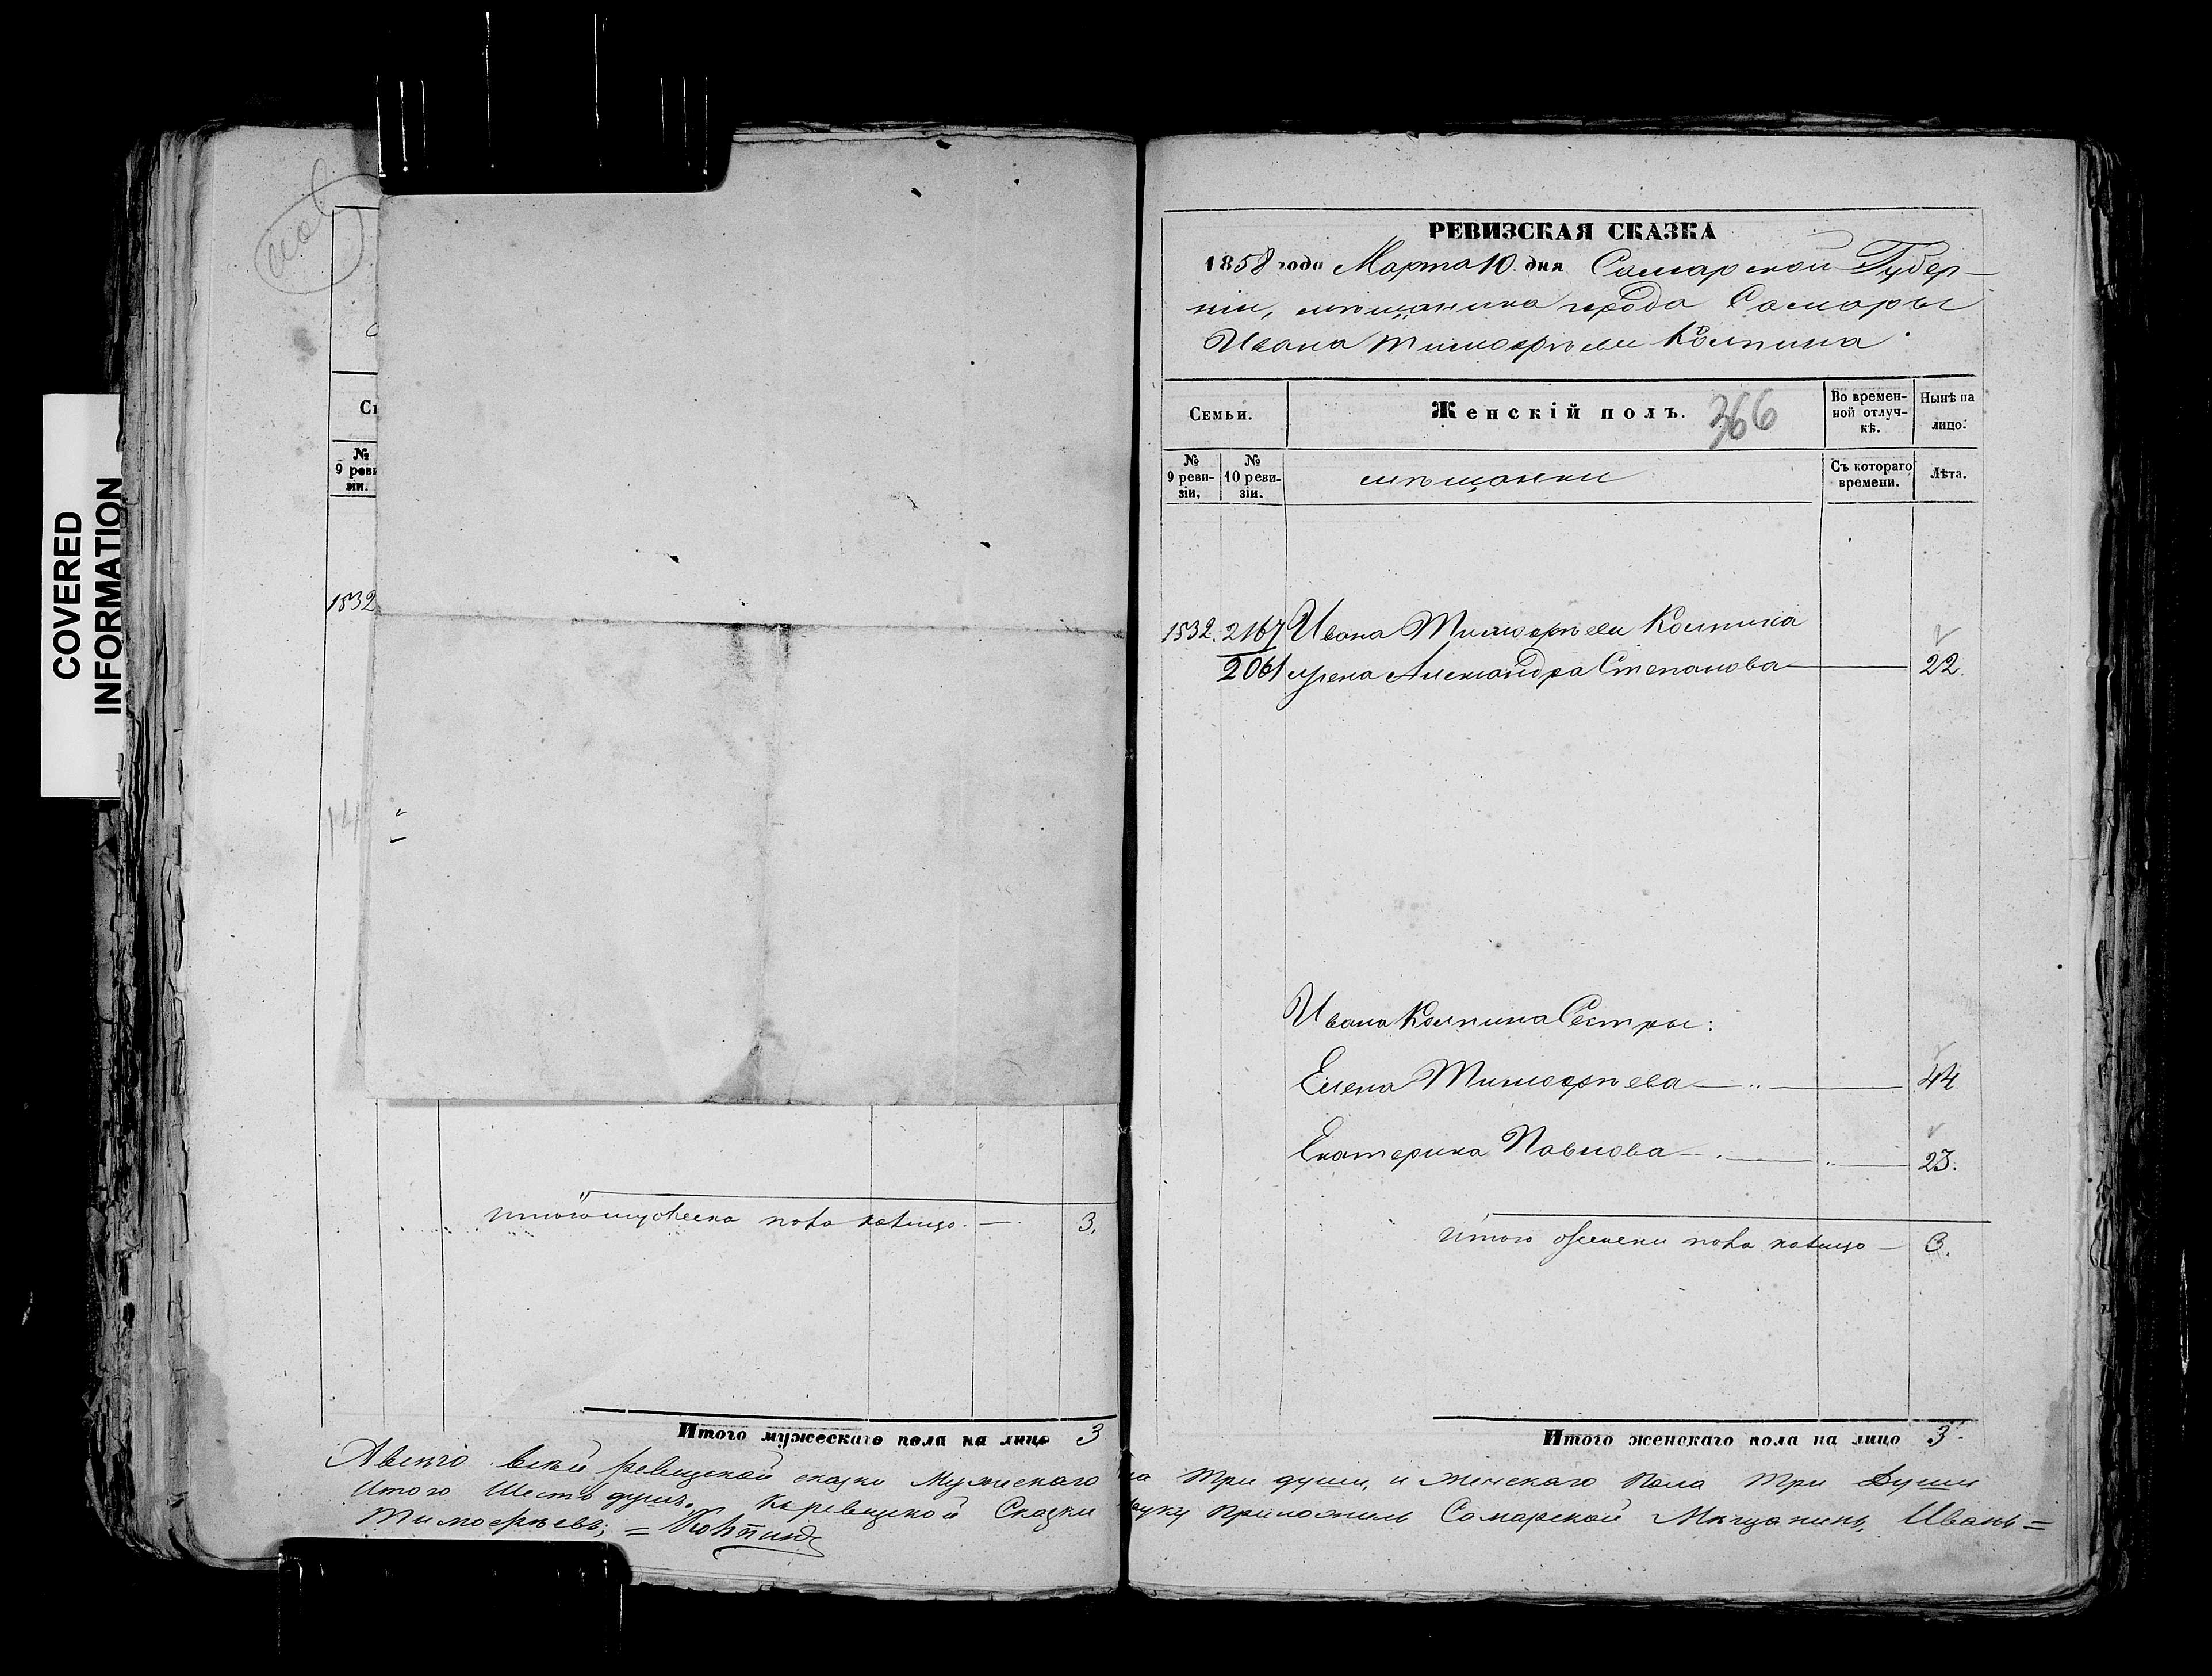 COVERED
INFORMATION
№
9 реви
зіи.
1532
14
итого мужеска пола налицо — 3.
Итого мужескаго пола на лицо 3
РЕВИЗСКАЯ СКАЗКА
1858 года Марта 10. дня Самарской Губер-
ніи, мѣщанина города Самары
Ивана Тимофѣева Колпина
Семьи.
Женскій полъ.
366
Во времен-
ной отлуч-
кѣ.
Нынѣ на
лицо.
№
9 реви-
зіи.
№
10 реви-
зіи.
мѣщанки
Съ котораго
времени.
Лѣта.
1532. 2167 Ивана Тимофѣева Колпина
2061 жена Александра Степанова 22.
Ивана Колпина Сестры:
Елена Тимофѣева 44
Екатерина Павлова 23.
итого женска пола налицо — 3.
Итого женскаго пола на лицо 3.
А всего в сей ревизской сказке Мужескаго на три души, и женскаго пола три Души
Итого Шесть душъ. Къ ревизской Сказки руку приложилъ Самарской Мѣщанинъ, Иванъ =
Тимофѣевъ; = Колпинъ